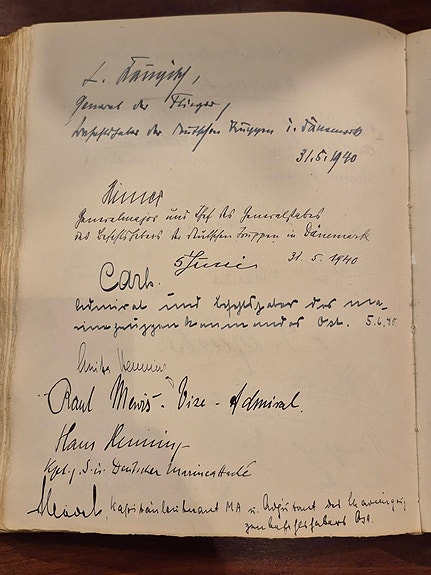 L. Kaupisch,
General der Flieger,
Befehlshaber der deutschen Truppen i. Dänemark
31.5.1940
Himer
Generalmajor und Chef des Generalstabes
des Befehlshabers der deutschen Truppen in Dänemark
31. 5. 1940
5 Juni
Carls.
Admiral und Befehlshaber des Ma-
rinegruppenkommandos Ost. 5.6.40.
Henning
Raul Mewis - Vize-Admiral.
Hans Henning
Kpt. z. S. u. Deutscher Marineattaché
Kapitänleutnant MA u. Adjutant des Marinegrup-
penbefehlshabers Ost.